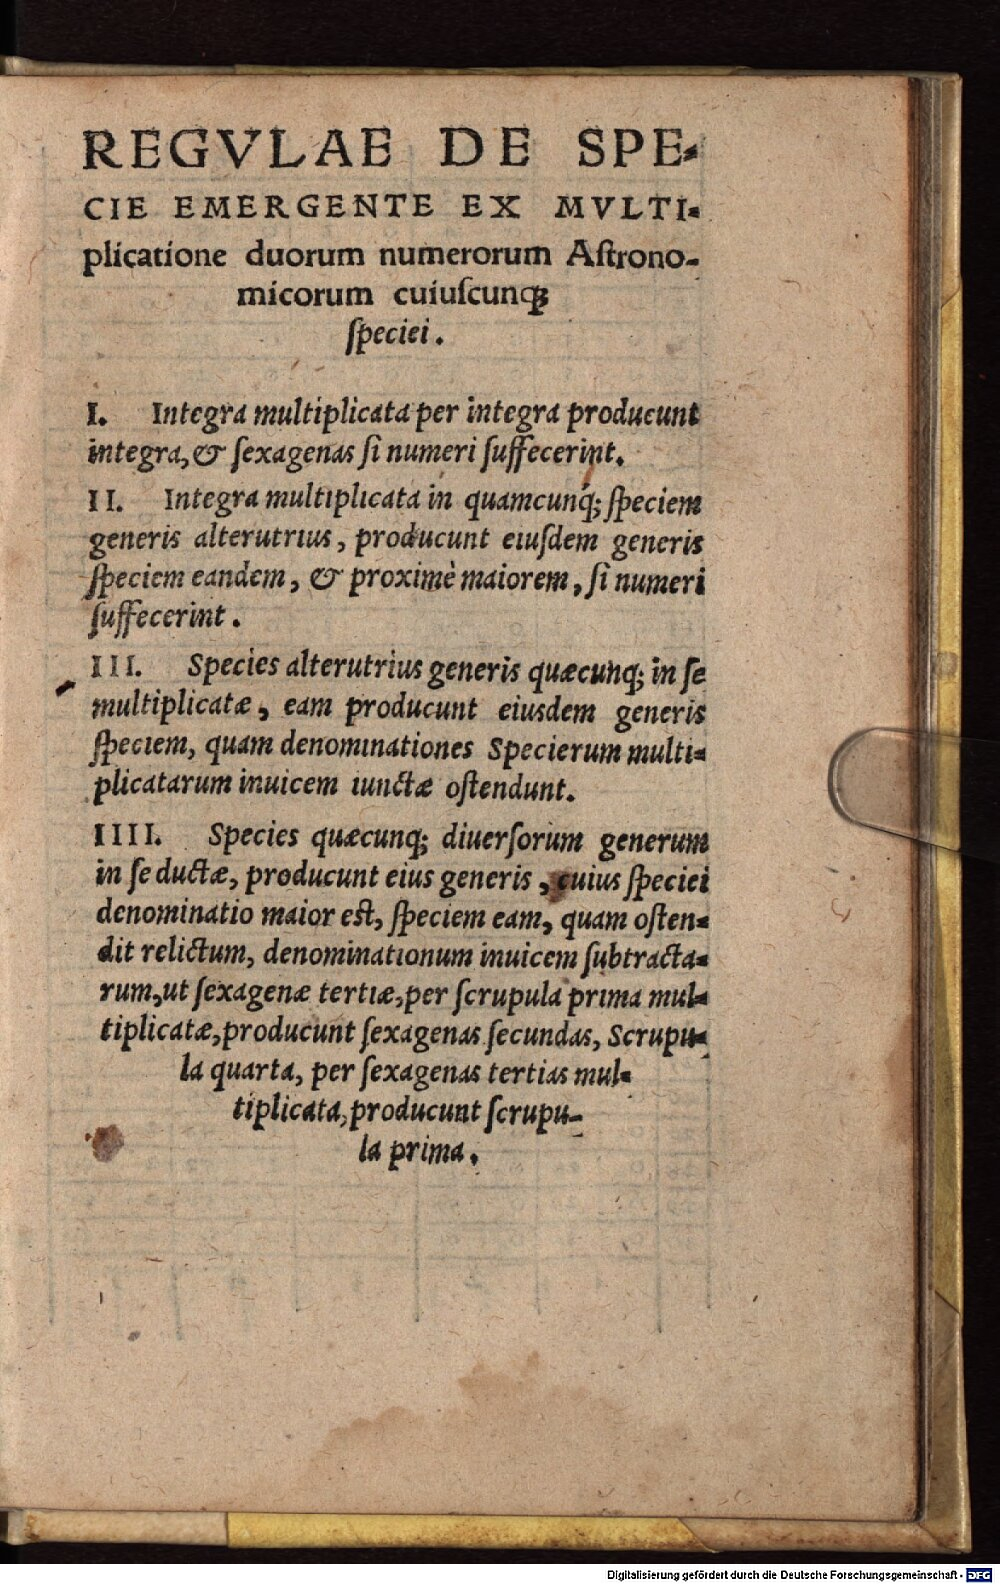 REGVLAE DE SPE-
CIE EMERGENTE EX MVLTI-
plicatione duorum numerorum Aſtrono-
micorum cuiuſcunqꝫ
ſpeciei.
I. Integra multiplicata per integra producunt
integra, & ſexagenas ſi numeri ſuffecerint.
II. Integra multiplicata in quamcunq́ꝫ ſpeciem
generis alterutrius, producunt eiuſdem generis
ſpeciem eandem, & proximè maiorem, ſi numeri
ſuffecerint.
III. Species alterutrius generis quæcunqꝫ in ſe
multiplicatæ, eam producunt eiusdem generis
ſpeciem, quam denominationes Specierum multi-
plicatarum inuicem iunctæ oſtendunt.
IIII. Species quæcunqꝫ diuerſorum generum
in ſe ductæ, producunt eius generis, cuius ſpeciei
denominatio maior est, ſpeciem eam, quam oſten-
dit relictum, denominationum inuicem ſubtracta-
rum, ut ſexagenæ tertiæ, per ſcrupula prima mul-
tiplicatæ, producunt ſexagenas ſecundas, Scrupu-
la quarta, per ſexagenas tertias mul-
tiplicata, producunt ſcrupu-
la prima.
Digitalisierung gefördert durch die Deutsche Forschungsgemeinschaft - DFG